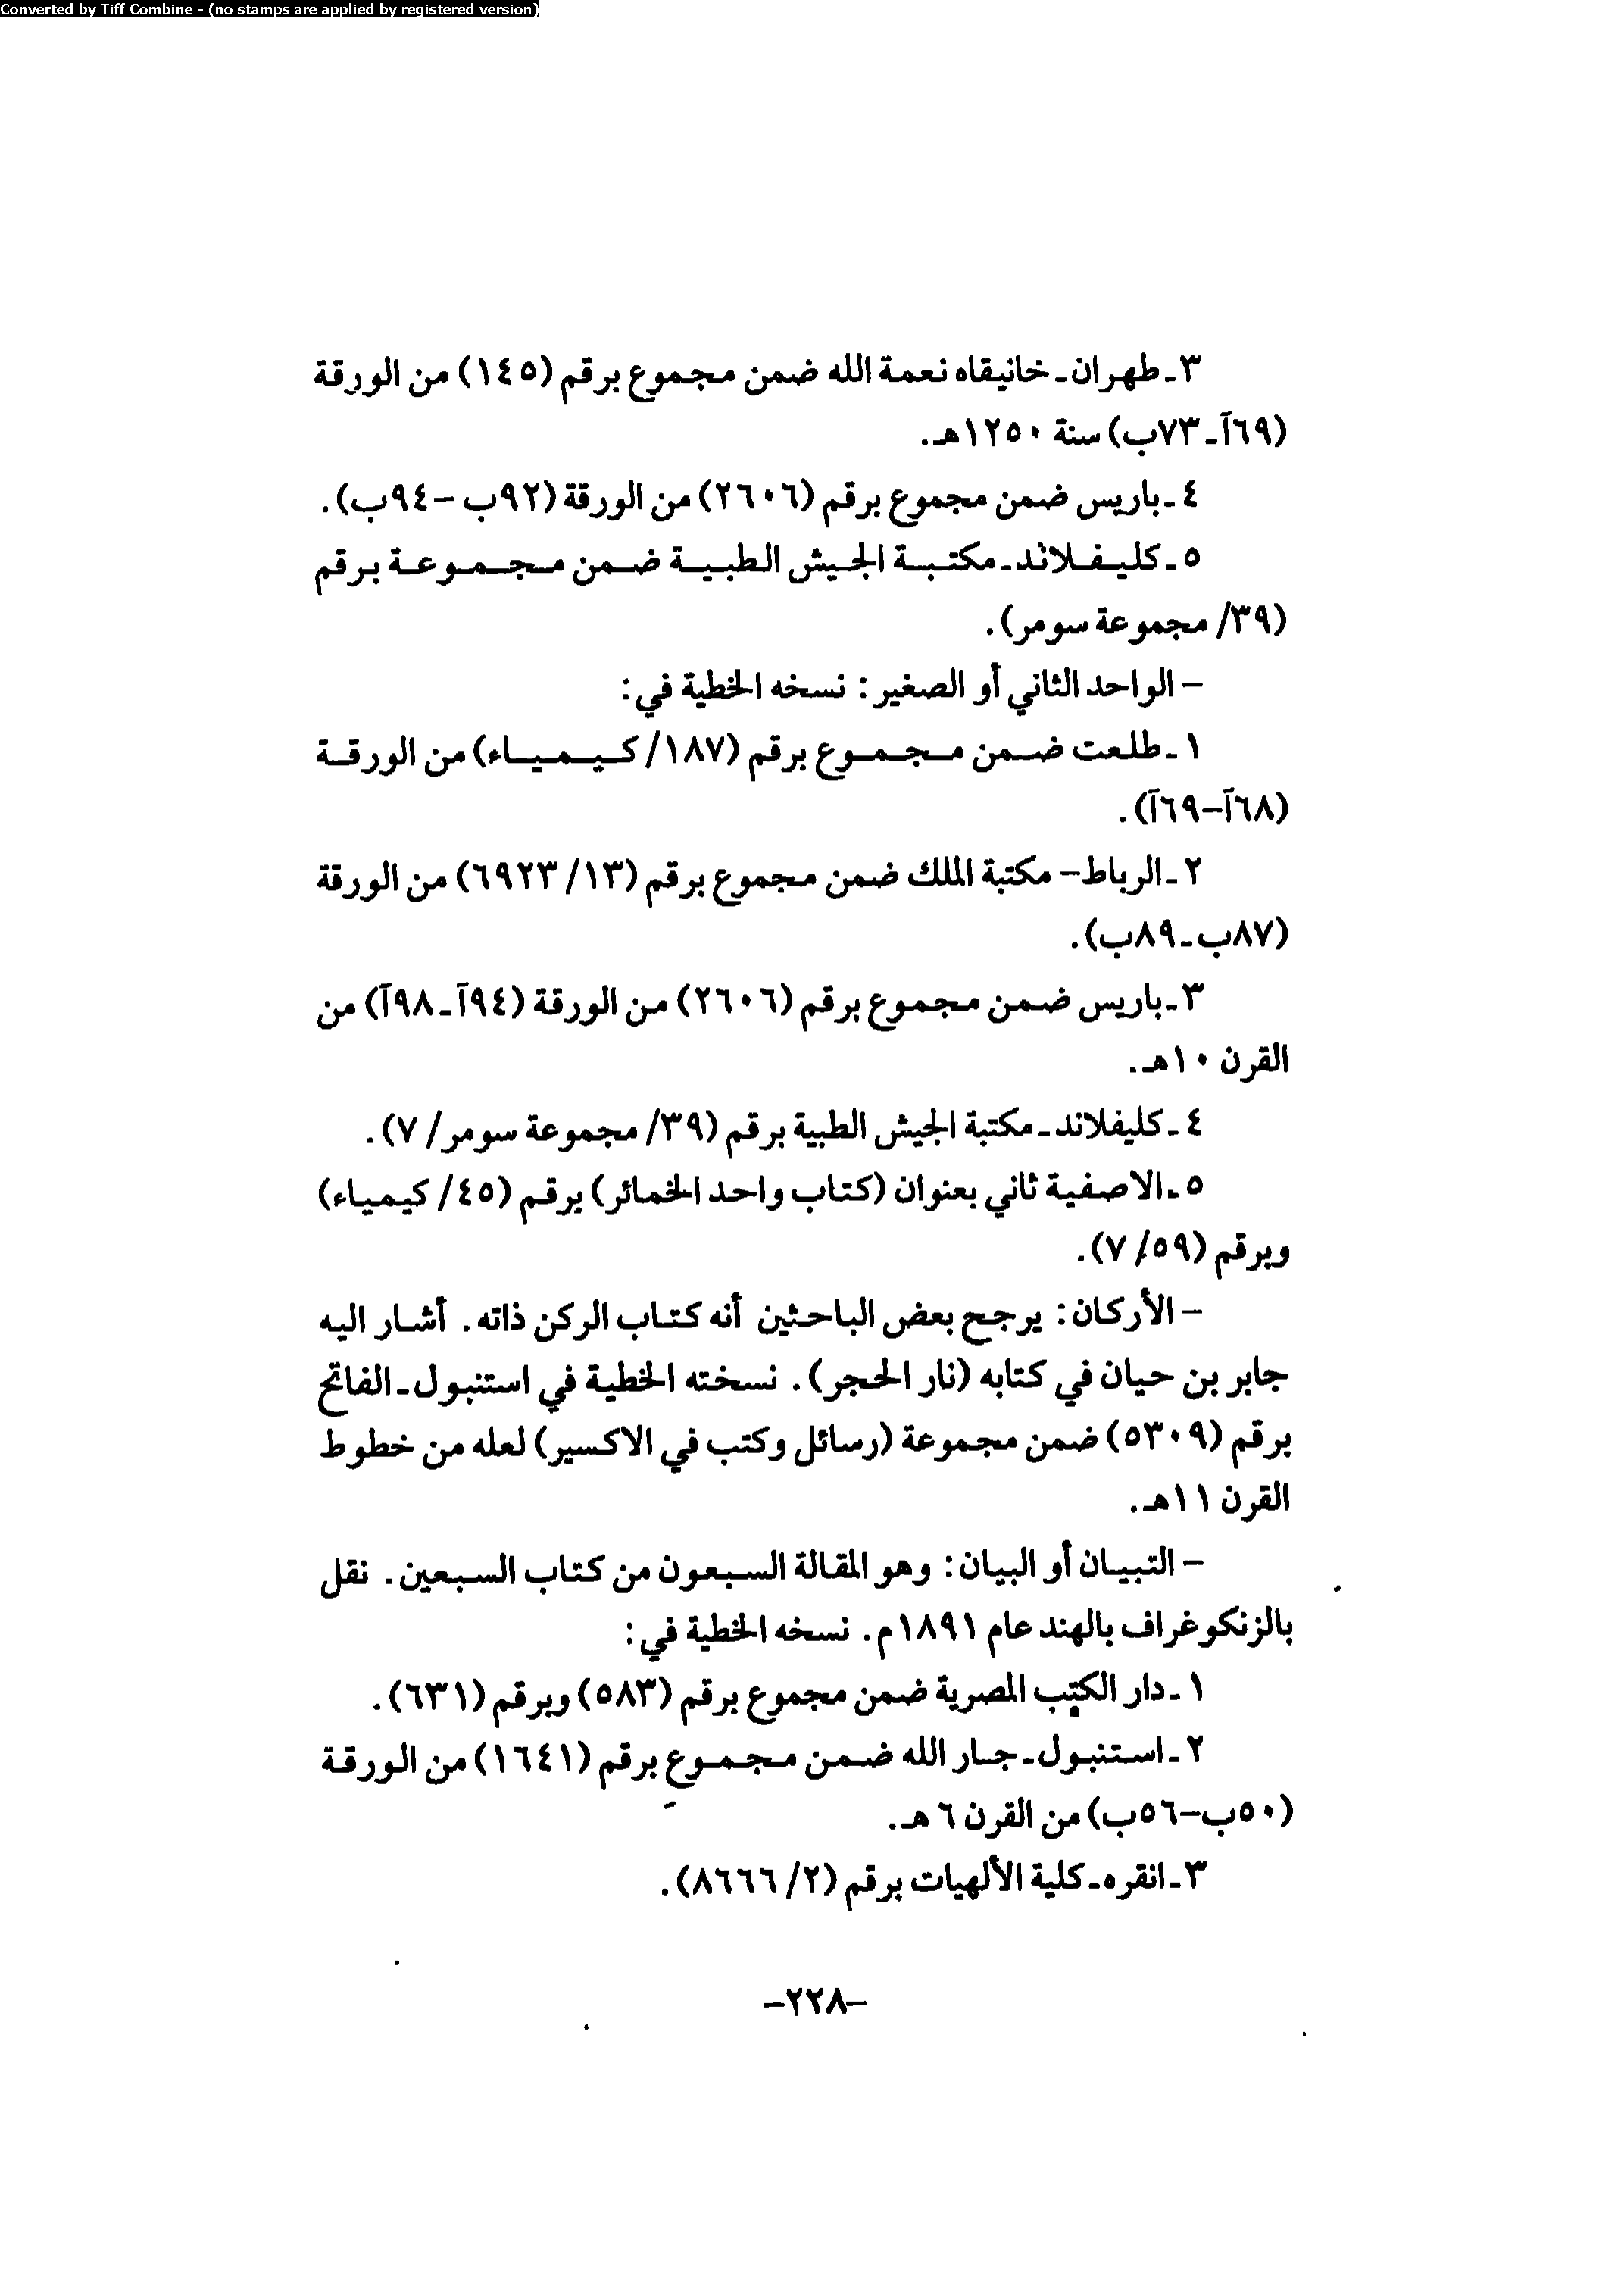 Converted by Tiff Combine - (no stamps are applied by registered version)
٣ـ طهران ـ خانيقاه نعمة الله ضمن مجموع برقم (١٤٥) من الورقة
(٦٩آ ـ ٧٣ب) سنة ١٢٥٠هـ.
٤ ـ باريس ضمن مجموع برقم (٢٦٠٦) من الورقة (٩٢ب – ٩٤ب).
٥ ـ كليفلاند ـ مكتبة الجيش الطبية ضمن مجموعة برقم
(٣٩/ مجموعة سومر).
– الواحد الثاني أو الصغير: نسخه الخطية في:
١ ـ طلعت ضمن مجموع برقم (١٨٧/ كيمياء) من الورقة
(٦٨آ–٦٩آ).
٢ ـ الرباط– مكتبة الملك ضمن مجموع برقم (١٣/ ٦٩٢٣) من الورقة
(٨٧ب ـ ٨٩ب).
٣ ـ باريس ضمن مجموع برقم (٢٦٠٦) من الورقة (٩٤آ ـ ٩٨آ) من
القرن ١٠هـ.
٤ ـ كليفلاند ـ مكتبة الجيش الطبية برقم (٣٩/ مجموعة سومر/ ٧).
٥ ـ الاصفية ثاني بعنوان (كتاب واحد الخمائر) برقم (٤٥/ كيمياء)
وبرقم (٥٩/ ٧).
– الأركان: يرجح بعض الباحثين أنه كتاب الركن ذاته. أشار اليه
جابر بن حيان في كتابه (نار الحجر). نسخته الخطية في استنبول ـ الفاتح
برقم (٥٣٠٩) ضمن مجموعة (رسائل وكتب في الاكسير) لعله من خطوط
القرن ١١هـ.
– التبيان أو البيان: وهو المقالة السبعون من كتاب السبعين. نقل
بالزنكوغراف بالهند عام ١٨٩١م. نسخه الخطية في:
١ ـ دار الكتب المصرية ضمن مجموع برقم (٥٨٣) وبرقم (٦٣١).
٢ ـ استنبول ـ جار الله ضمن مجموع برقم (١٦٤١) من الورقة
(٥٠ب–٥٦ب) من القرن ٦هـ.
٣ ـ انقره ـ كلية الألهيات برقم (٢/ ٨٦٦٦).
–٢٢٨–